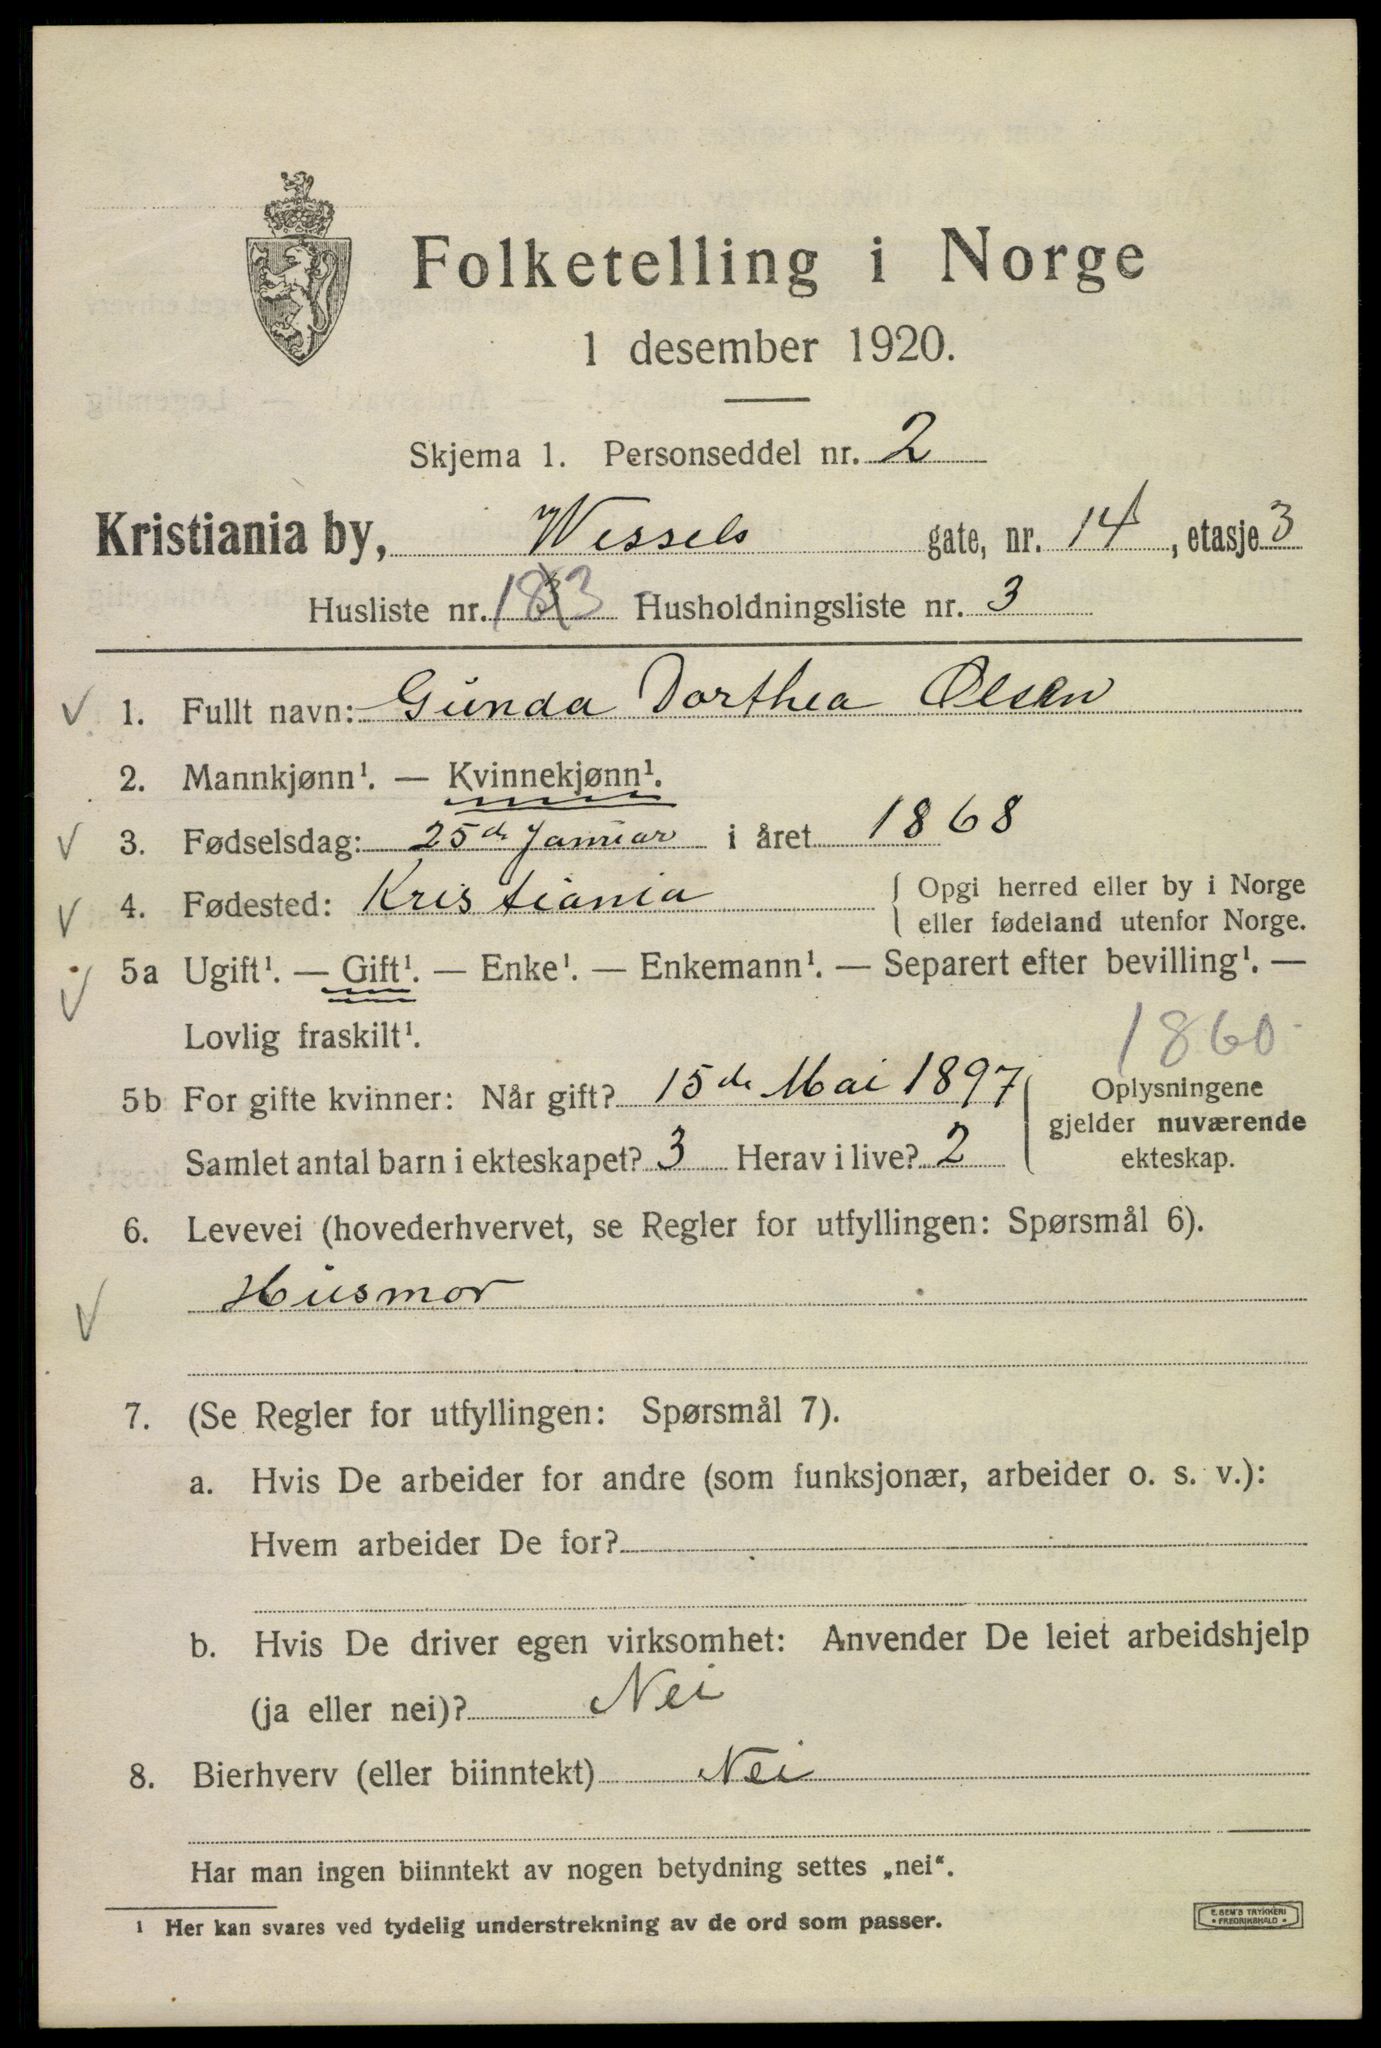 Folketelling i Norge
1 desember 1920.
Skjema 1. Personseddel nr. 2
Kristiania by, Wessels gate, nr. 14, etasje 3
Husliste nr. 183 Husholdningsliste nr. 3
1. Fullt navn: Gunda Dorthea Olsen
2. Mannkjønn¹. — Kvinnekjønn¹.
3. Fødselsdag: 25de Januar i året 1868
4. Fødested: Kristiania { Opgi herred eller by i Norge
eller fødeland utenfor Norge.
5a Ugift¹. — Gift¹. — Enke¹. — Enkemann¹. — Separert efter bevilling¹. —
Lovlig fraskilt¹.
1860
5b For gifte kvinner: Når gift? 15de Mai 1897
Samlet antal barn i ekteskapet? 3 Herav i live? 2
Oplysningene
gjelder nuværende
ekteskap.
6. Levevei (hovederhvervet, se Regler for utfyllingen: Spørsmål 6).
Husmor
7. (Se Regler for utfyllingen: Spørsmål 7).
a. Hvis De arbeider for andre (som funksjonær, arbeider o. s. v.):
Hvem arbeider De for?
b. Hvis De driver egen virksomhet: Anvender De leiet arbeidshjelp
(ja eller nei)? Nei
8. Bierhverv (eller biinntekt) Nei
Har man ingen biinntekt av nogen betydning settes „nei“.
¹ Her kan svares ved tydelig understrekning av de ord som passer.
E. SEM'S TRYKKERI
• FREDRIKSHALD •